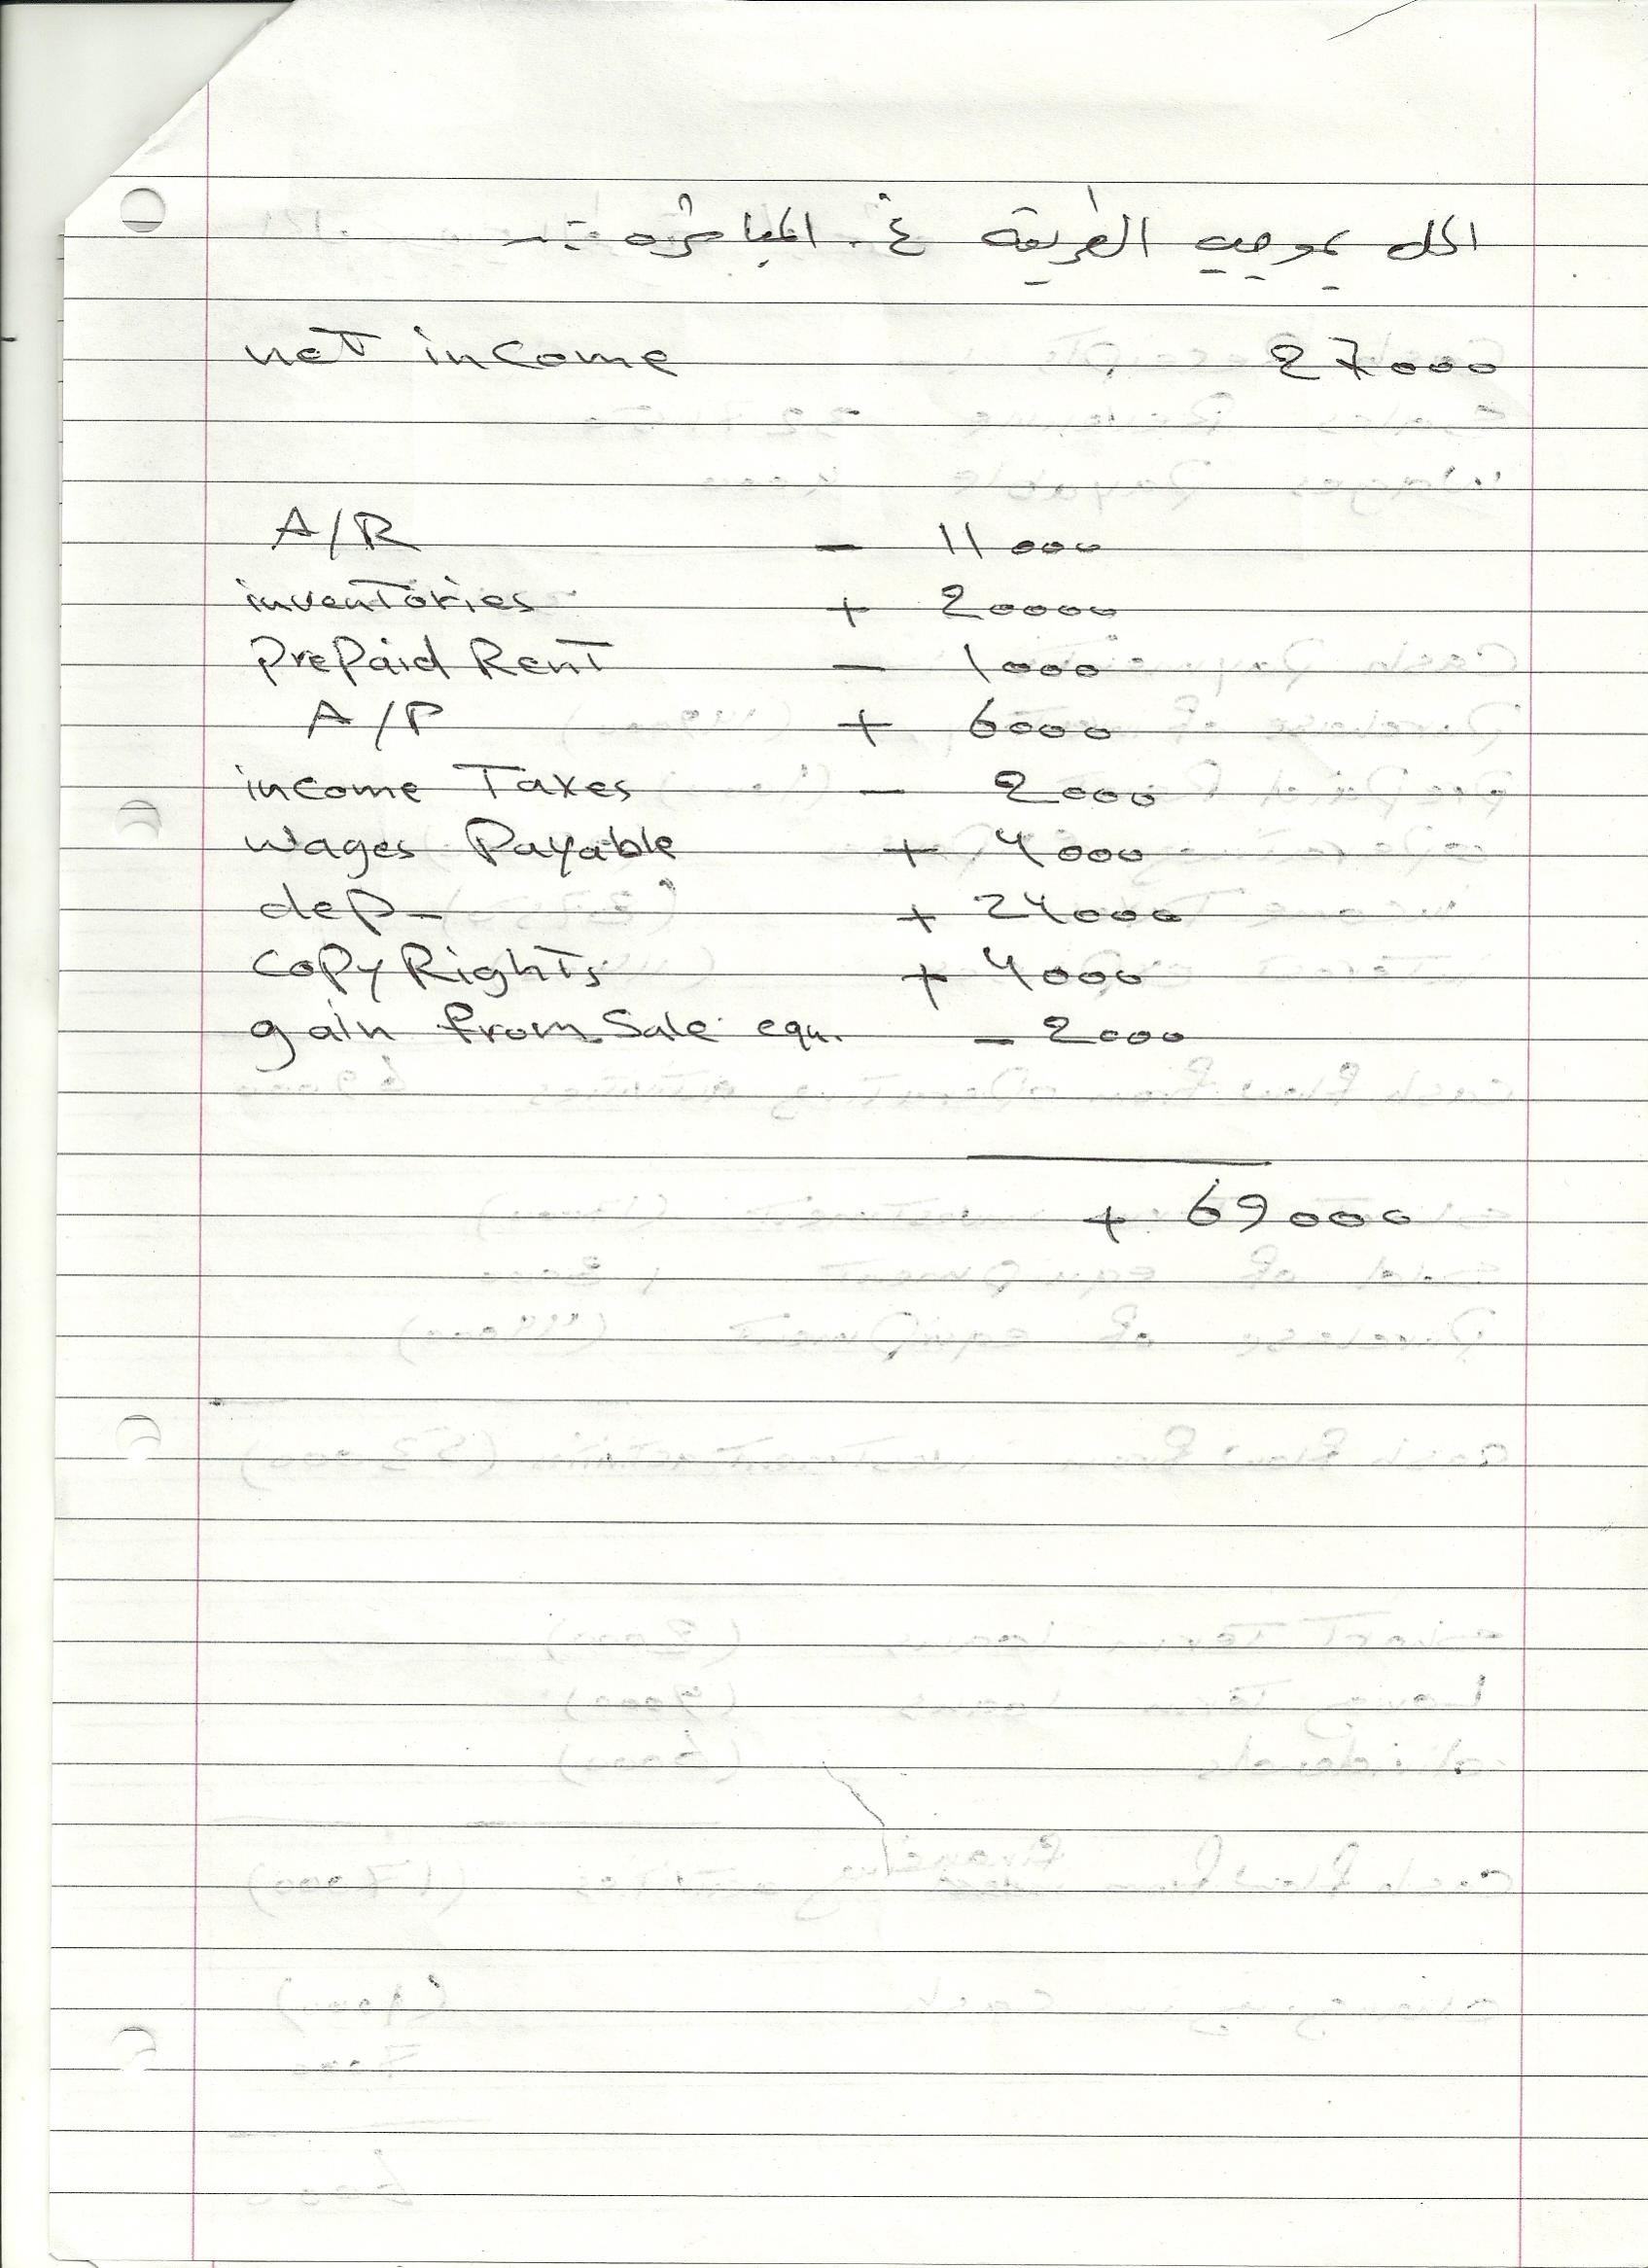 الحل بموجب الطريقة غ. المباشرة :-
net income 27000
A/R - 11000
inventories + 20000
PrePaid Rent - 1000
A/P + 6000
income Taxes - 2000
wages Payable + 4000
dep- + 24000
CopyRights + 4000
gain from Sale equ. - 2000
+ 69000